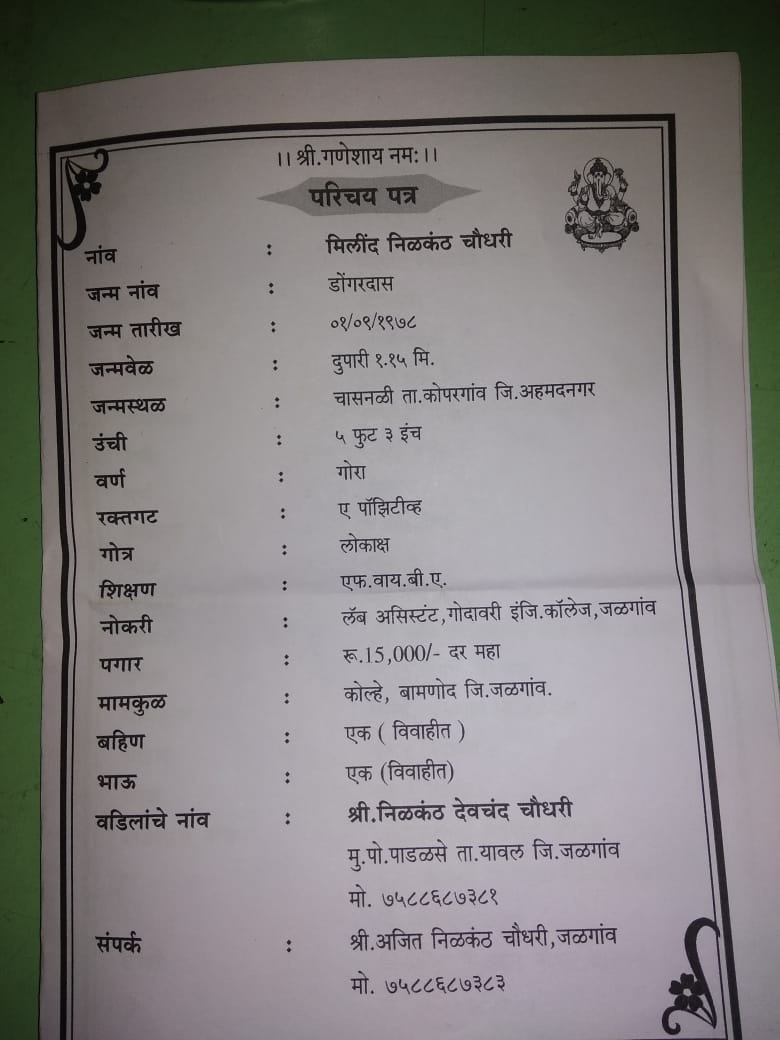 ।। श्री.गणेशाय नमः।।
परिचय पत्र
नांव : मिलींद निळकंठ चौधरी
जन्म नांव : डोंगरदास
जन्म तारीख : ०१/०९/१९७८
जन्मवेळ : दुपारी १.१५ मि.
जन्मस्थळ : चासनळी ता.कोपरगांव जि.अहमदनगर
उंची : ५ फुट ३ इंच
वर्ण : गोरा
रक्तगट : ए पॉझिटीव्ह
गोत्र : लोकाक्ष
शिक्षण : एफ.वाय.बी.ए.
नोकरी : लॅब असिस्टंट,गोदावरी इंजि.कॉलेज,जळगांव
पगार : रू.15,000/- दर महा
मामकुळ : कोल्हे, बामणोद जि.जळगांव.
बहिण : एक ( विवाहीत )
भाऊ : एक (विवाहीत)
वडिलांचे नांव : श्री.निळकंठ देवचंद चौधरी
मु.पो.पाडळसे ता.यावल जि.जळगांव
मो. ७५८८६८७३८१
संपर्क : श्री.अजित निळकंठ चौधरी,जळगांव
मो. ७५८८६८७३८३